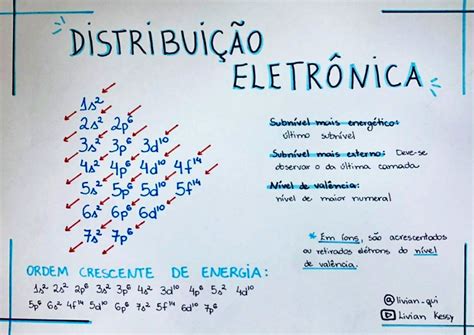 DISTRIBUIÇÃO
ELETRÔNICA
1s²
2s² 2p⁶
3s² 3p⁶ 3d¹⁰
4s² 4p⁶ 4d¹⁰ 4f¹⁴
5s² 5p⁶ 5d¹⁰ 5f¹⁴
6s² 6p⁶ 6d¹⁰
7s² 7p⁶
Subnível mais energético:
último subnível
Subnível mais externo: Deve-se
observar o da última camada
Nível de valência:
nível de maior numeral
* Em íons, são acrescentados
ou retirados elétrons do nível
de valência.
ORDEM CRESCENTE DE ENERGIA:
1s² 2s² 2p⁶ 3s² 3p⁶ 4s² 3d¹⁰ 4p⁶ 5s² 4d¹⁰
5p⁶ 6s² 4f¹⁴ 5d¹⁰ 6p⁶ 7s² 5f¹⁴ 6d¹⁰ 7p⁶
@livian_qui
Livian Kessy